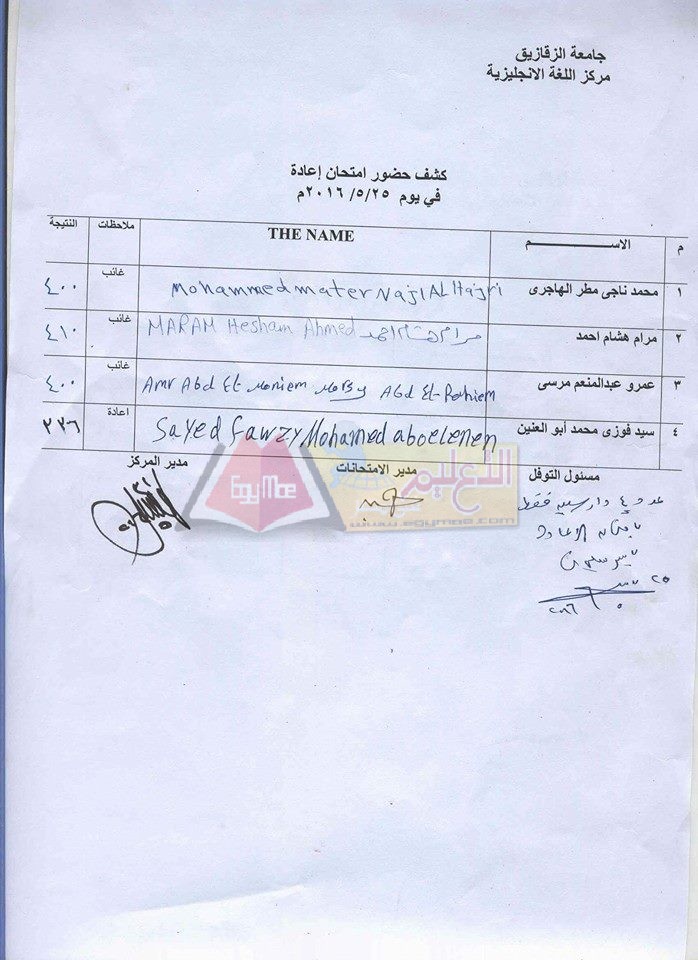 جامعة الزقازيق
مركز اللغة الانجليزية
كشف حضور امتحان إعادة
في يوم ٢٠١٦/٥/٢٥م
م الاســـــــــم THE NAME ملاحظات النتيجة
١ محمد ناجى مطر الهاجرى Mohammed mater Naji AL Hajri غائب ٤٠٠
٢ مرام هشام احمد MARAM Hesham Ahmed مرام هشام احمد غائب ٤١٠
٣ عمرو عبدالمنعم مرسى Amr Abd El-moniem morsy Abd El-Rahiem غائب ٤٠٠
٤ سيد فوزى محمد أبو العنين Sayed fawzy Mohamed aboelenen اعادة ٢٢٦
مسئول التوفل مدير الامتحانات مدير المركز
عدد ٤ دارسين فقط
EgyMoe التعليم
www.egymoe.com